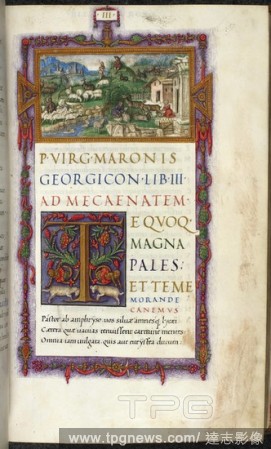 III
P·VIRG·MARONIS
GEORGICON·LIB·III·
AD MECAENATEM·
T E QVOQ·
MAGNA
PALES·
ET TE ME
MORANDE
CANEMVS
Pastor ab amphryso: vos siluæ amnesq; lycei
Cætera quæ vacuas tenuissent carmine mentes
Omnia iam vulgata: quis aut eurysthea durum
TPG
www.tpgnews.com/達志影像